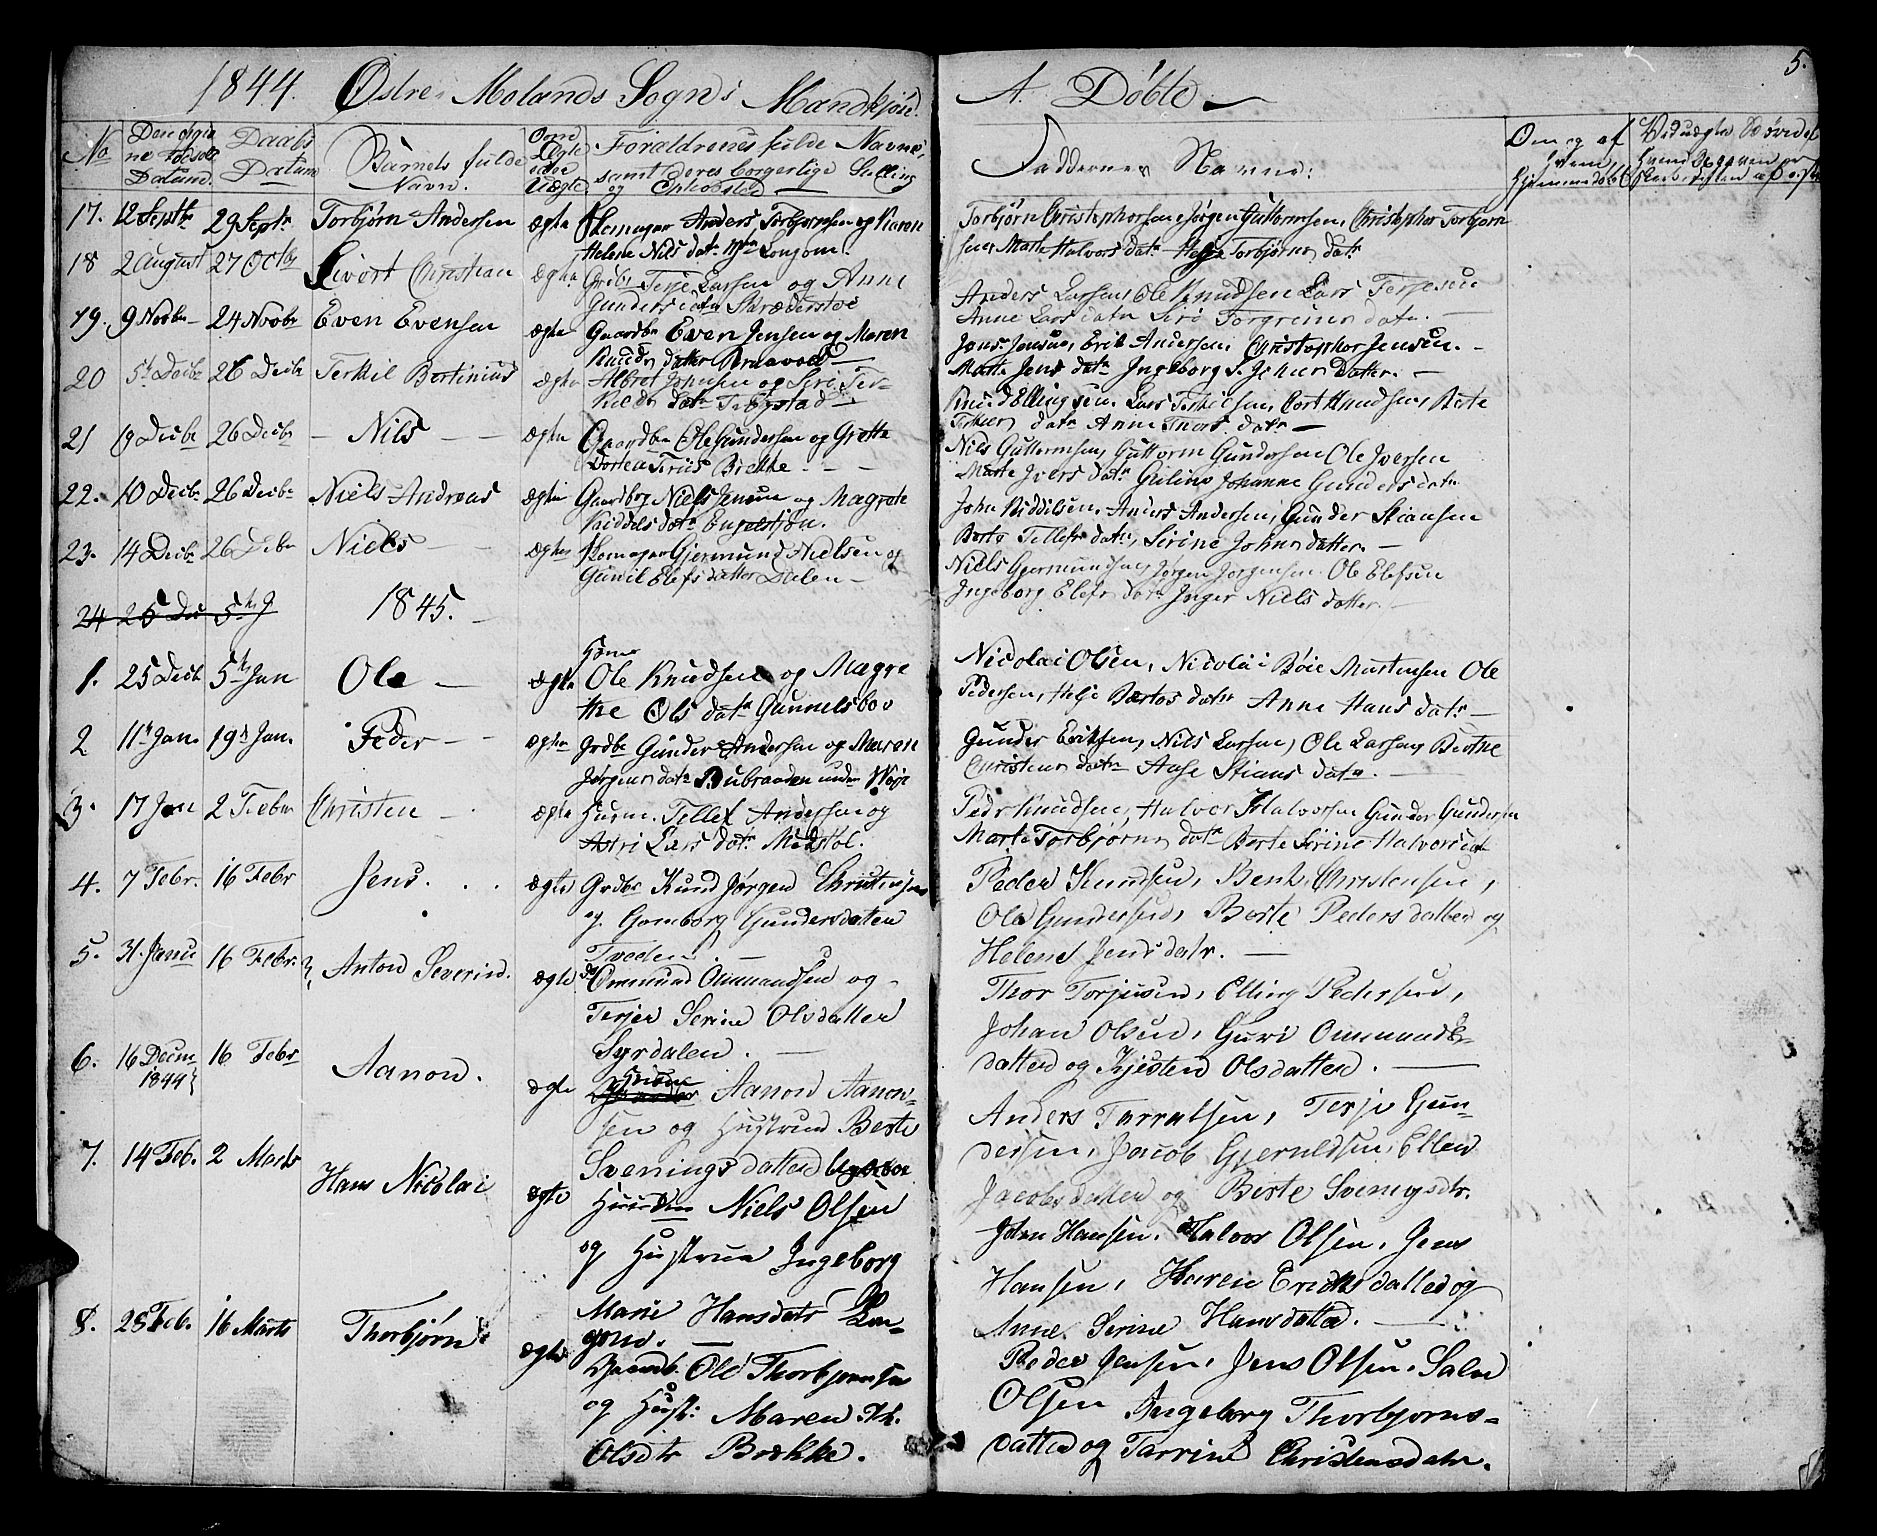 1844. Østre Molands Sogns Mandkjøn. A. Døbte 5.
No Datum. Daabs Datum Barnets fulde Navn. Om Ægte eller Uægte Forældrenes fulde Navne, samt deres borgerlige Stilling og Opholdsted Faddernes Navne: Om og af hvem hjemmedøbt
17. 12 Septbr 29 Septr Torbjørn Andersen ægte Anders Torbjørnsen og Karen
Helene Nils datr Longom.
Torbjørn Christophersen Jørgen Guttormsen, Christopher Torbjørn
sen, Marte Halvors datr Helje Torbjørns datr
18 2 August 27 Octbr Sivert Christian ægte Grdbr Terje Larsen og Anne
Gunders datr Skræderstøe
Anders Larsen, Ole Knudsen Lars Terjesen
Anne Lars datr Siri Torgrims datr.
19. 9 Novbr 24 Novbr Even Evensen ægte Gaardbr Even Jensen og Maren
Knuds datter Braavold
Jens Jensen, Erik Andersen, Christopher Jensen.
Marte Jens datr Ingeborg S. Johns datter.
20 5t Decbr 26 Decbr Terkil Bertinius ægte Albret Johnsen og Siri Ter-
kilds datr Trøgstad
Knud Ellingsen. Lars Terkilsen, Cort Knudsen, Berte
Terkils datr Anne Thors datr
21 19 Decbr 26 Decbr Nils ægte Gaardbr Ole Gundersen og Grethe
Dortea Friis Brekke
Nils Guttormsen, Guttorm Gundersen Ole Iversen
Marte Ivers datr Johanne Gunders datr
22. 10 Decbr 26 Decbr Niels Andreas ægte Gaardbrg Niels Jensen og Magrete
Kiddels datr Engelstrøn.
John Kiddelsen. Anders Andersen, Gunder Stiansen
Berte Tellefs datr, Sirine Johns datter.
23. 14 Decbr 26 Debr Niels ægte Gjermund Nielsen og
Gunil Elefs datter Dalen
Niels Gjermundsen, Jørgen Jørgensen. Ole Elefsen
Ingeborg Elefs datr Inger Niels datter.
24 25 Dec 5te J
1845.
1. 25 Decb 5te Jan Ole ægte Ole Knudsen og Magre
the Ols datr Gunnelsbov
Nicolai Olsen, Nicolai Bøie Mortensen Ole
Pedersen, Helje Bertos datr Anne Hans datr
2 11te Jan. 19de Jan. Peder ægte Grdbr Gunder Andersen og Maren
Jørgens datr Bubraaden under Woje
Gunder Eriksen, Nils Larsen, Ole Larsen, Berthe
Christens datr Aase Stians datr.
3. 17 Jan 2 Febr Christen ægte Husm. Tellef Andersen og
Astri Lars datr. Midstøl.
Pedr Knudsen, Halvor Halvorsen Gunder Gundersen
Marte Torbjørns datr Berte Sirine Halvors datr
4. 7 Febr. 16 Febr Jens. ægte Grdbr Knud Jørgen Christensen
og Gomborg Gundersdatter
Tveden.
Peder Knudsen, Bent Christensen,
Ole Gundersen, Berte Peders datter og
Helene Jens datr.
5. 31. Janu 16 Febr. Anton Severin. ægte do Ommund Ommundsen og
Terjer Serine Olsdatter
Syrdalen.
Thor Torjusen, Elling Pedersen,
Johan Olsen, Guri Ommunds-
datter og Kjesten Olsdatter.
6. 16 Decm 1844 16 Febr Aanon. ægte Aanon Aanon-
sen og Hustrue Berte
Svenings datter
Anders Tarraldsen, Terje Gun-
dersen, Jacob Gjeruldsen, Ellen
Jacobsdatter og Berte Sveningsdtr.
7. 14 Feb. 2 Marts Hans Nicolai ægte Niels Olsen
og Hustrue Ingeborg
Marie Hansdatr Lon-
gom.
John Hansen, Halvor Olsen, Jens
Hansen, Karen Eriks datter og
Anne Serine Hansdatter.
8. 28 Feb. 16 Marts Thorbjørn ægte Gaardb. Ole Thorbjørnsen
og Hust: Maren
Olsdtr Brække.
Peder Jensen, Jens Olsen,
Olsen Ingeborg Thorbjørns-
datter og Tarrine Christensdatr.